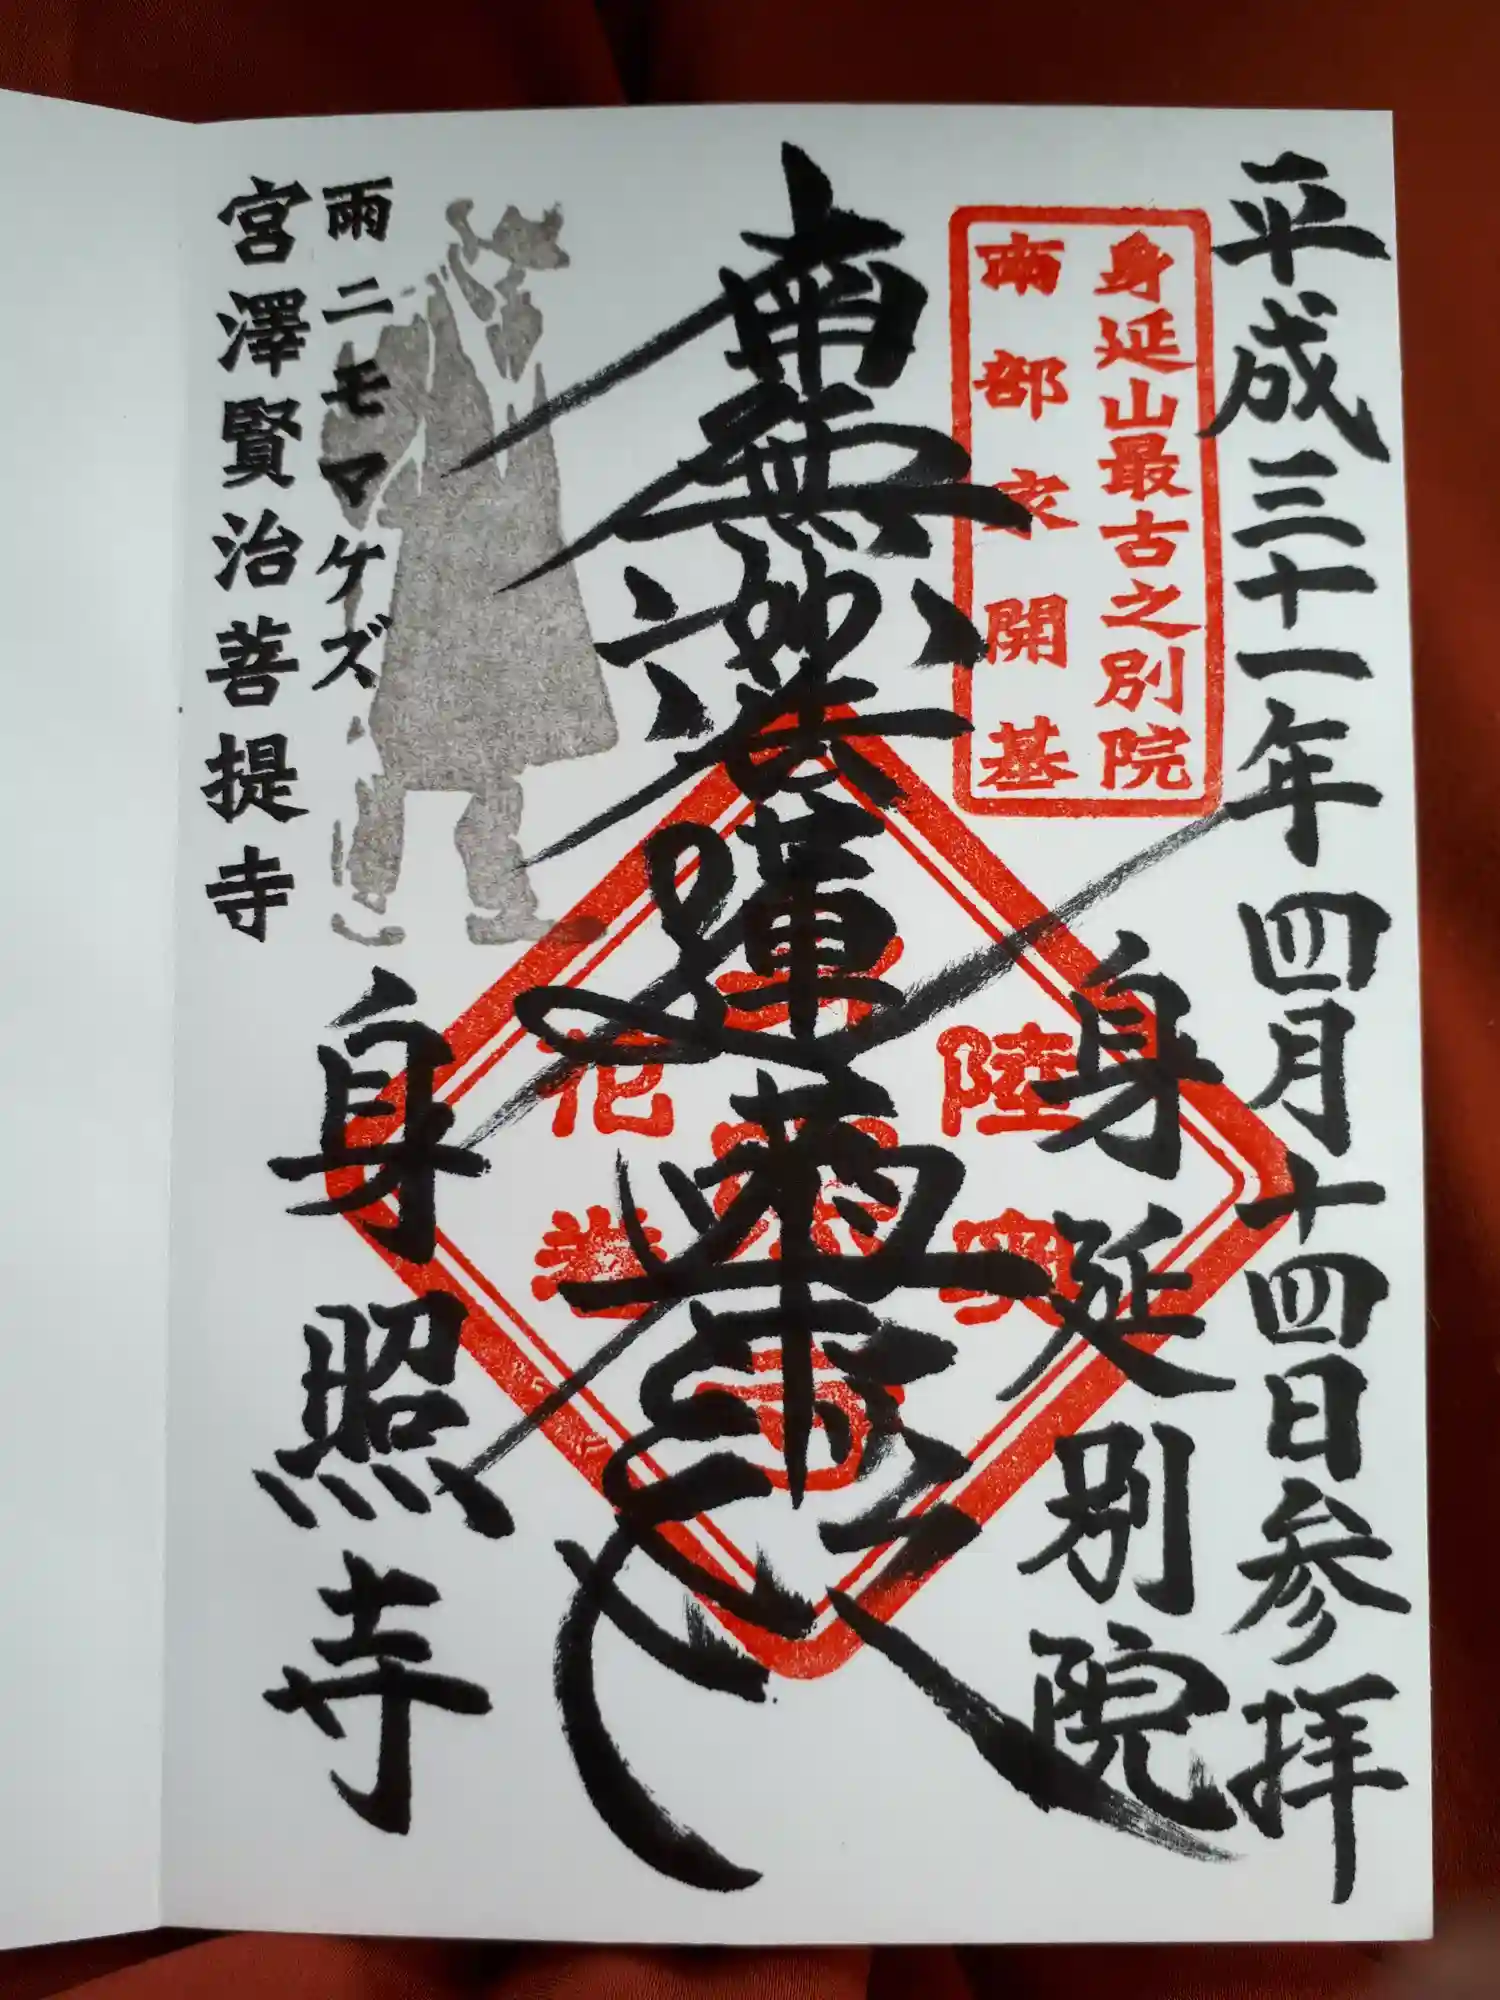 平成三十一年四月十四日参拝
身延山最古之別院
南部家開基
身延別院
南無妙法蓮華経
陸奥
花巻
身照寺
雨ニモマケズ
宮澤賢治菩提寺